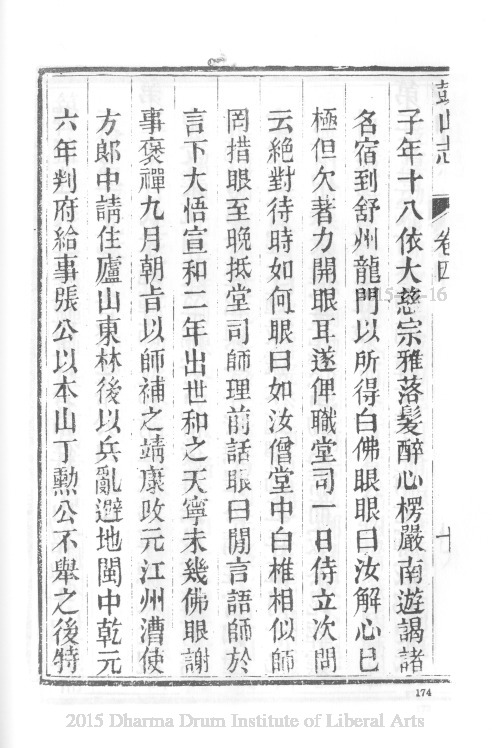 鼓山志
卷四
十
子年十八依大慈宗雅落髮醉心楞嚴南遊謁諸
名宿到舒州龍門以所得白佛眼眼曰汝解心已
極但欠著力開眼耳遂俾職堂司一日侍立次問
云絕對待時如何眼曰如汝僧堂中白椎相似師
罔措眼至晚抵堂司師理前話眼曰閒言語師於
言下大悟宣和二年出世和之天寧未幾佛眼謝
事褒禪九月朝旨以師補之靖康改元江州漕使
方郞中請住廬山東林後以兵亂避地閩中乾元
六年判府給事張公以本山丁勲公不舉之後特
174
2015 Dharma Drum Institute of Liberal Arts